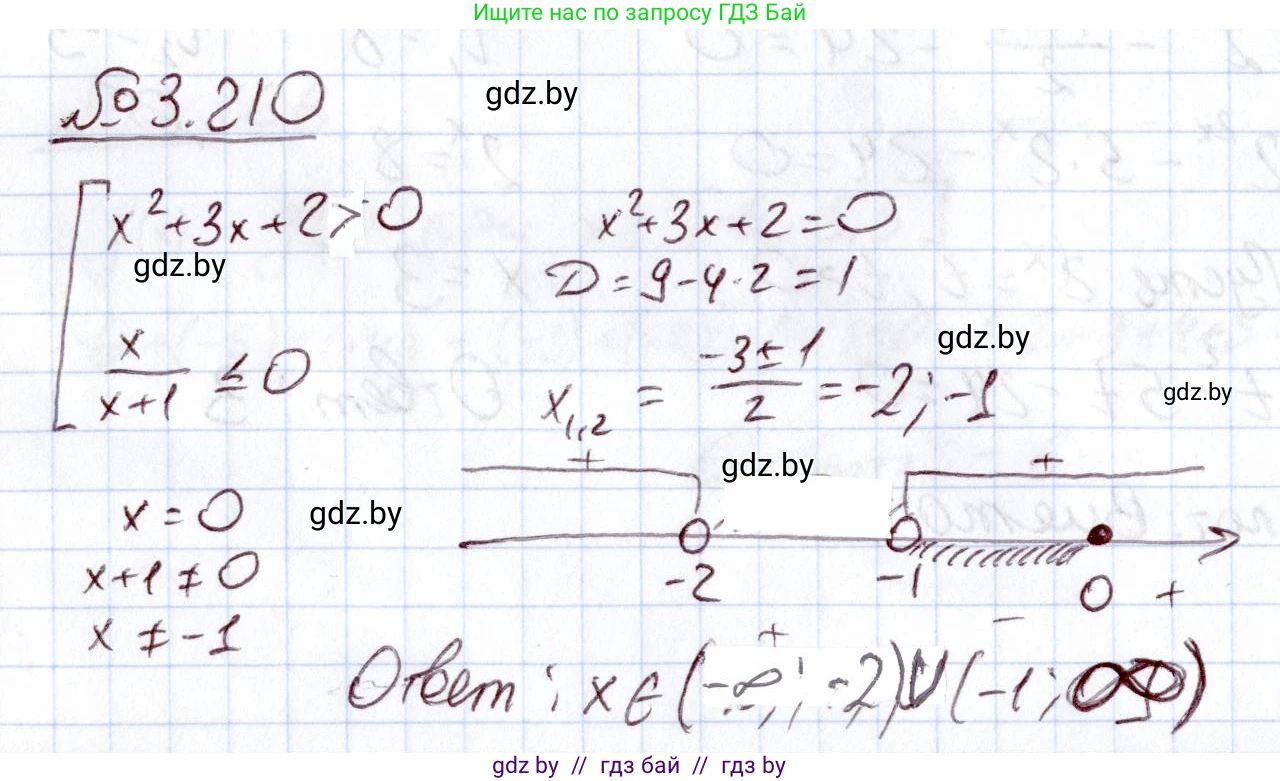 Ищите нас по запросу ГДЗ Бай
№ 3.210
gdz.by
x²+3x+2>0
x²+3x+2=0
gdz.by
D=9-4·2=1
x/(x+1) ≤ 0
gdz.by
x₁,₂ = (-3±1)/2 = -2; -1
gdz.by
+ gdz.by +
x = 0
gdz.by
x+1 ≠ 0
-2 -1 0 +
x ≠ -1
+ −
Ответ: x∈(-∞; -2)∪(-1; ∞)
gdz by // гдз бай // гдз by